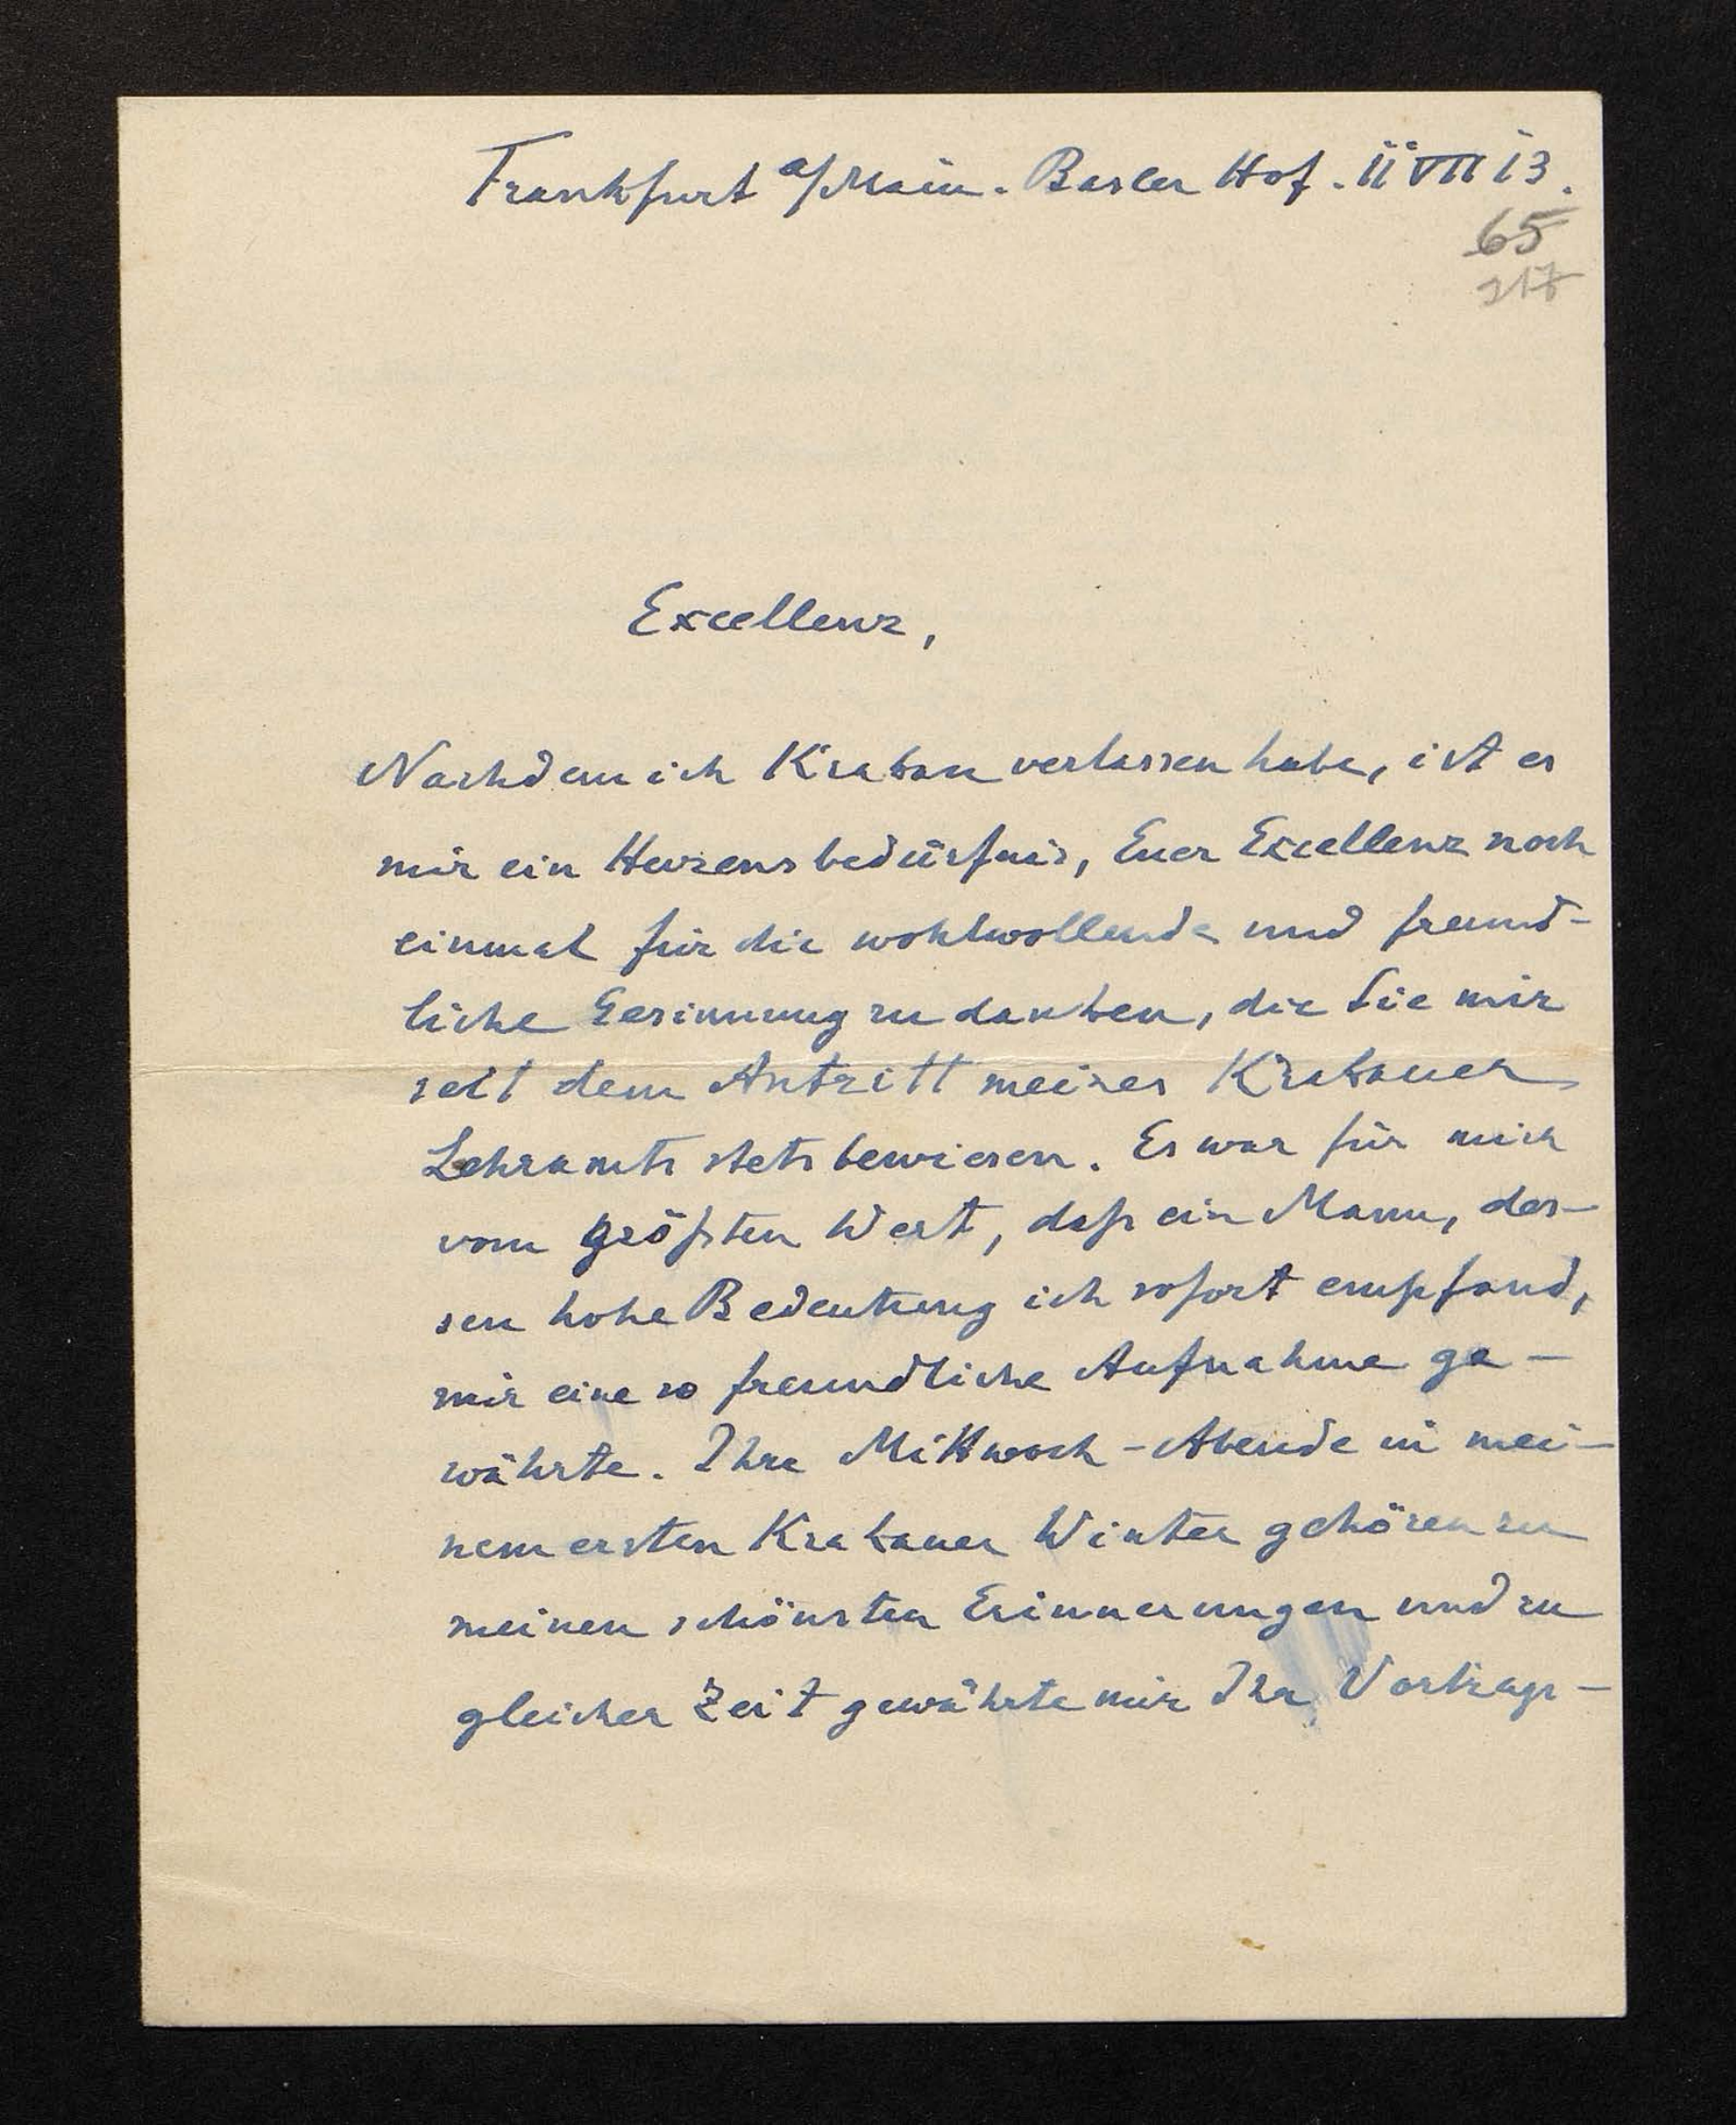 Frankfurt a/Main. Basler Hof. 11 VII 13.
65
217
Excellenz,
Nachdem ich Krakau verlassen habe, ist es
mir ein Herzensbedürfnis, Euer Excellenz noch
einmal für die wohlwollende und freund-
liche Gesinnung zu danken, die Sie mir
seit dem Antritt meines Krakauer
Lehramts stets bewiesen. Es war für mich
vom größten Wert, daß ein Mann, des-
sen hohe Bedeutung ich sofort empfand,
mir eine so freundliche Aufnahme ge-
währte. Ihre Mittwoch-Abende in mei-
nem ersten Krakauer Winter gehören zu
meinen schönsten Erinnerungen und zu
gleicher Zeit gewährte mir Ihr Vortrags-